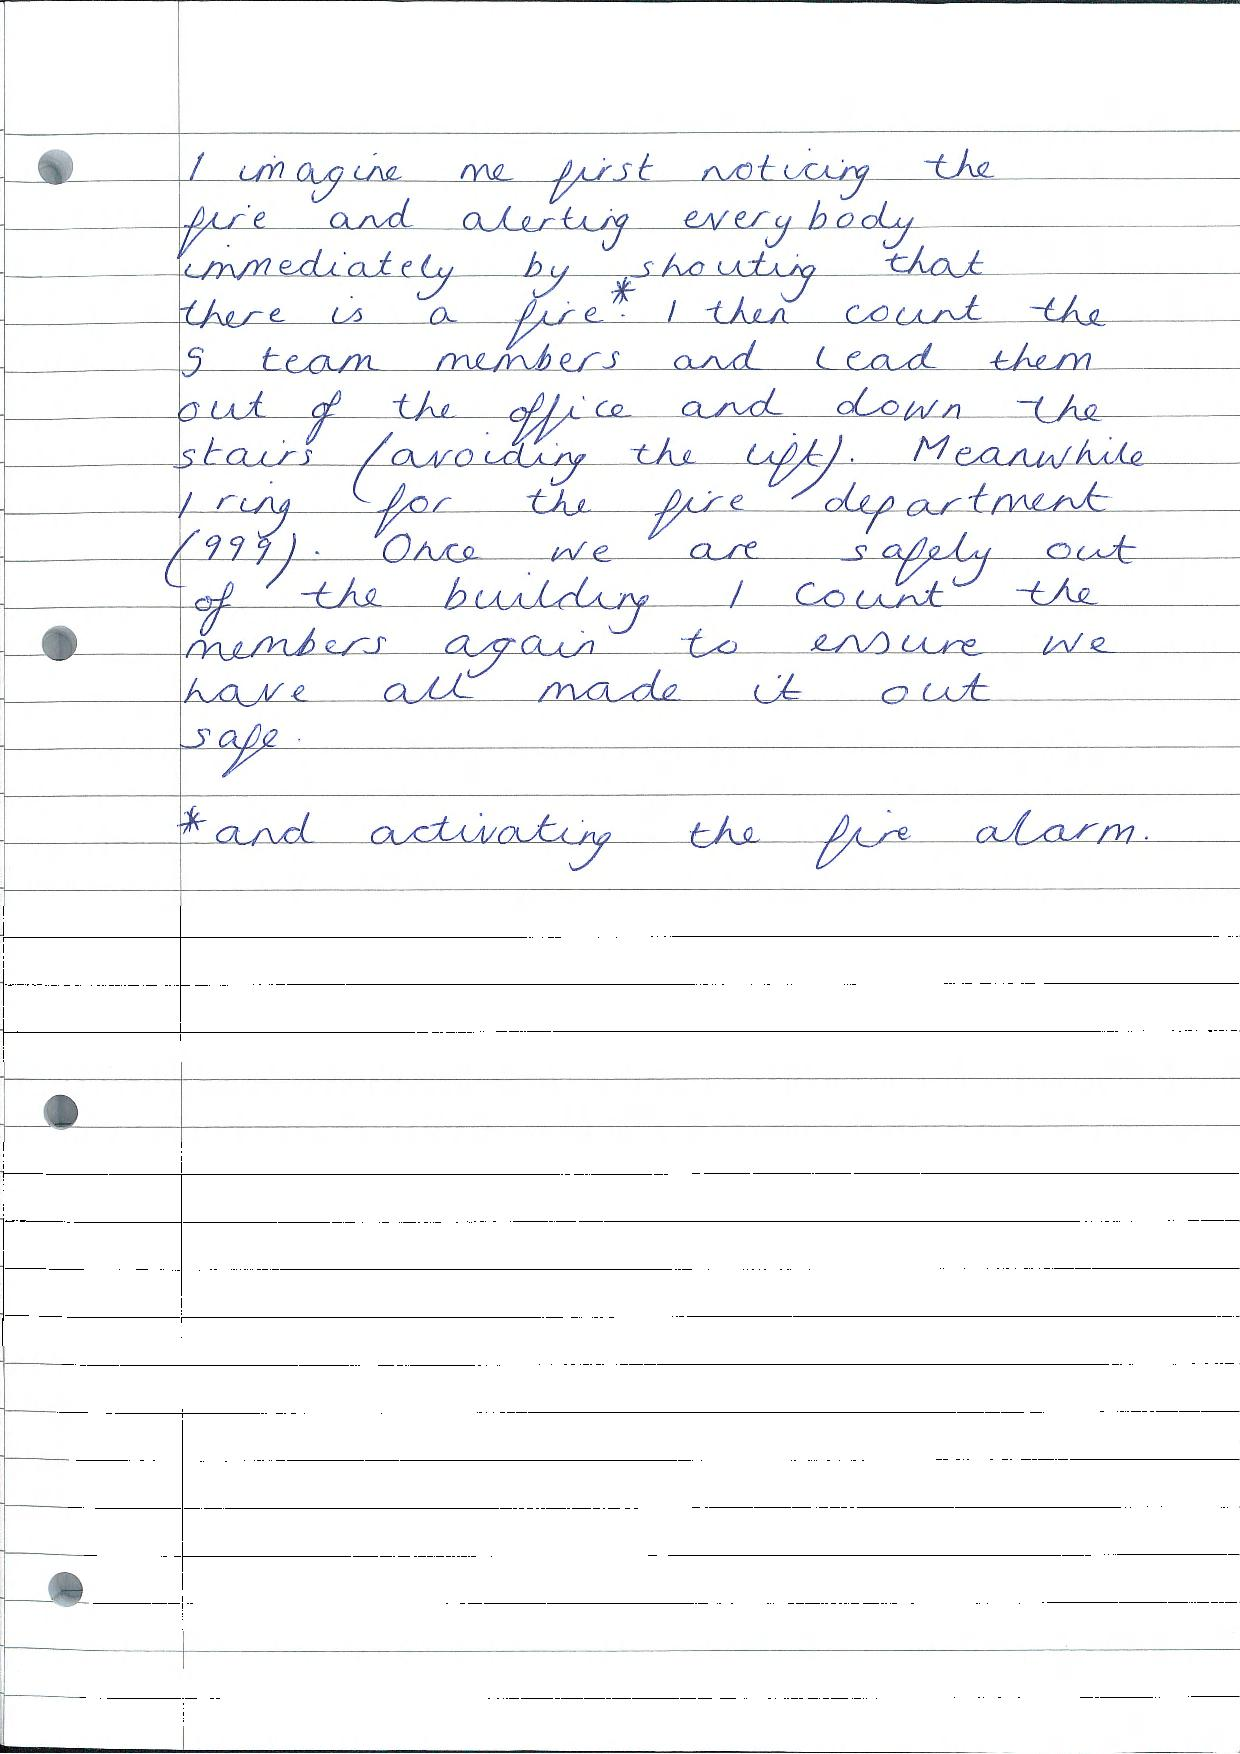 I imagine me first noticing the
fire and alerting everybody
immediately by shouting that
there is a fire*. I then count the
5 team members and lead them
out of the office and down the
stairs (avoiding the lift). Meanwhile
I ring for the fire department
(999). Once we are safely out
of the building I count the
members again to ensure we
have all made it out
safe.
*and activating the fire alarm.